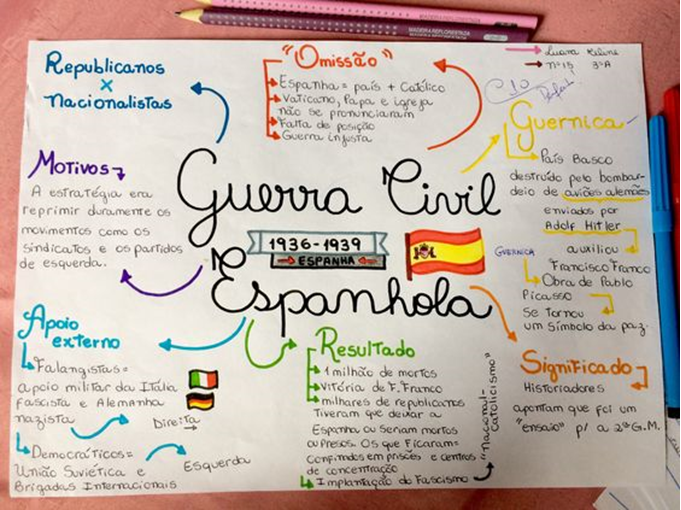 Republicanos
x
Nacionalistas
"Omissão"
Espanha = país + Católico
Vaticano, Papa e igreja
não se pronunciaram
Falta de posição
Guerra injusta
Luana
nº 15 3ºA
Guernica
País Basco
destruído pelo bombar-
deio de aviões alemães
enviados por
Adolf Hitler
auxiliou
Francisco Franco
GUERNICA
Obra de Pablo
Picasso
Se tornou
um símbolo da paz.
Motivos
A estratégia era
reprimir duramente os
movimentos como os
sindicatos e os partidos
de esquerda.
Guerra Civil
1936-1939
ESPANHA
Espanhola
Apoio
externo
Falangistas =
apoio militar da Itália
fascista e Alemanha
nazista
Direita
Democráticos =
União Soviética e
Brigadas Internacionais
Esquerda
Resultado
1 milhão de mortos
Vitória de F. Franco
milhares de republicanos
Tiveram que deixar a
Espanha ou seriam mortos
ou presos. Os que ficaram =
confinados em prisões e centros
de concentração
Implantação do Fascismo
"Nacional-
Catolicismo"
Significado
Historiadores
apontam que foi um
"ensaio" p/ a 2ª G.M.